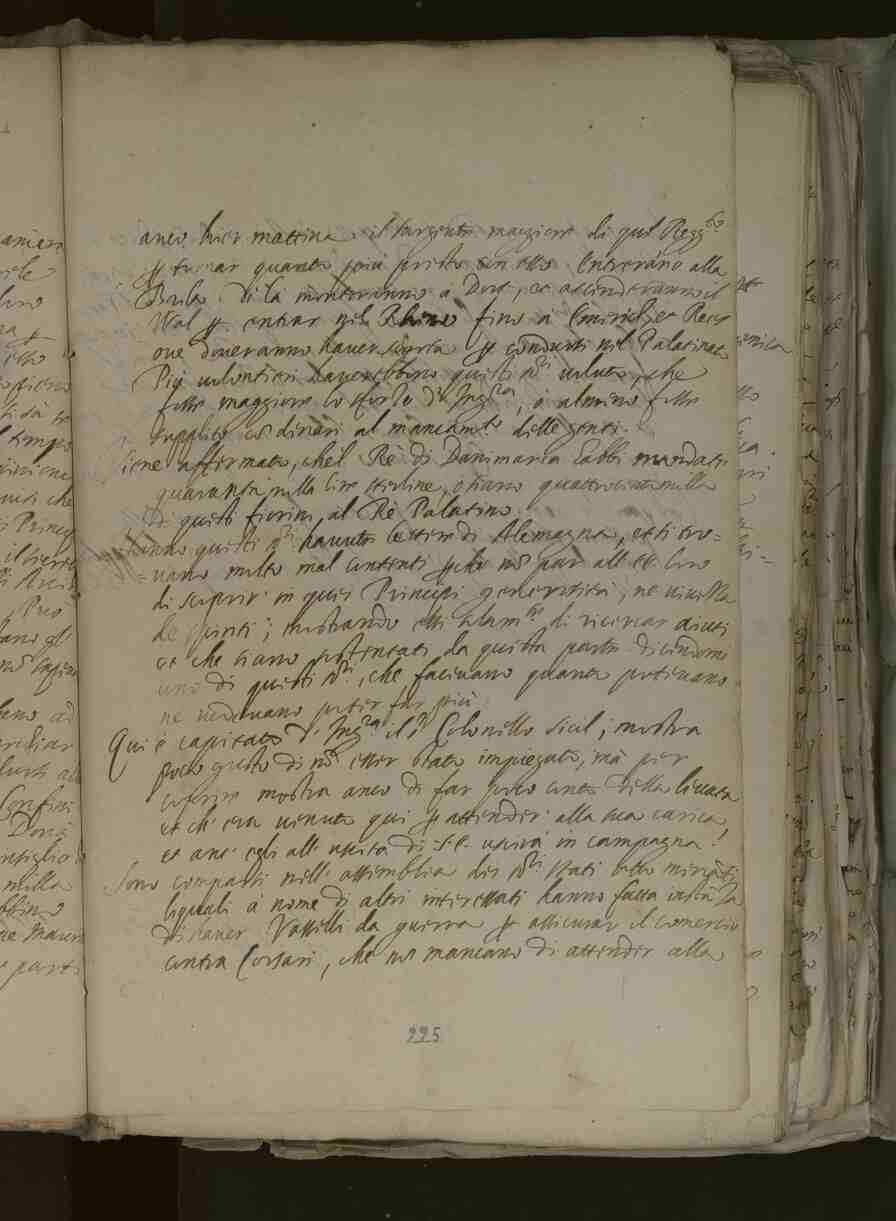 anco hier mattina il sargente maggiore di quel Regg.to
p tirar quanto più presto con esso. Entrerano alla
Brila di là monteranno à Dort, et ascenderanno il
Wal p entrar nel Rheno fino à Emerich et Rees
ove doveranno haver scorta p condursi nel Palatinato
Più volontieri haverebbero questi s.ri veduto, che
fosse maggiore lo sforzo d'Ing.ra, ò almeno fosse
supplito con dinari al mancam.to delle genti.
Viene affirmato, che'l Rè di Danimarca habbi mandato
quaranta milla lire sterline, ò siano quattrocento milla
di questi fiorini al Rè Palatino.
Hanno questi s.ri havuto lettere di Alemagna, et si tro=
=vano molto mal contenti p che non par all' ee. loro
di scoprir in quei Principi generosità, ne vivezza
de spiriti; mostrando essi solam.te di ricercar aiuti
et che siano sostentati da questa parte dicendomi
uno di questi s.ri, che facevano quanto potevano
ne vedevano poter far più
Qui è capitato d'Ing.ra il s.r Colonello Sicil; mostra
poco gusto di non esser stato impiegato, mà per
coprire mostra anco di far poco conto della levata
et ch' era venuto qui p attender alla sua carica,
et anc' egli all' uscita di S.E. uscirà in campagna.
Sono comparsi nell' assemblea dei s.ri Stati otto mercãti
liquali à nome di altri interessati hanno fatta instã.za
di haver Vasselli da guerra p assicurar il comercio
contra Corsari, che non mancano di attender alla
225